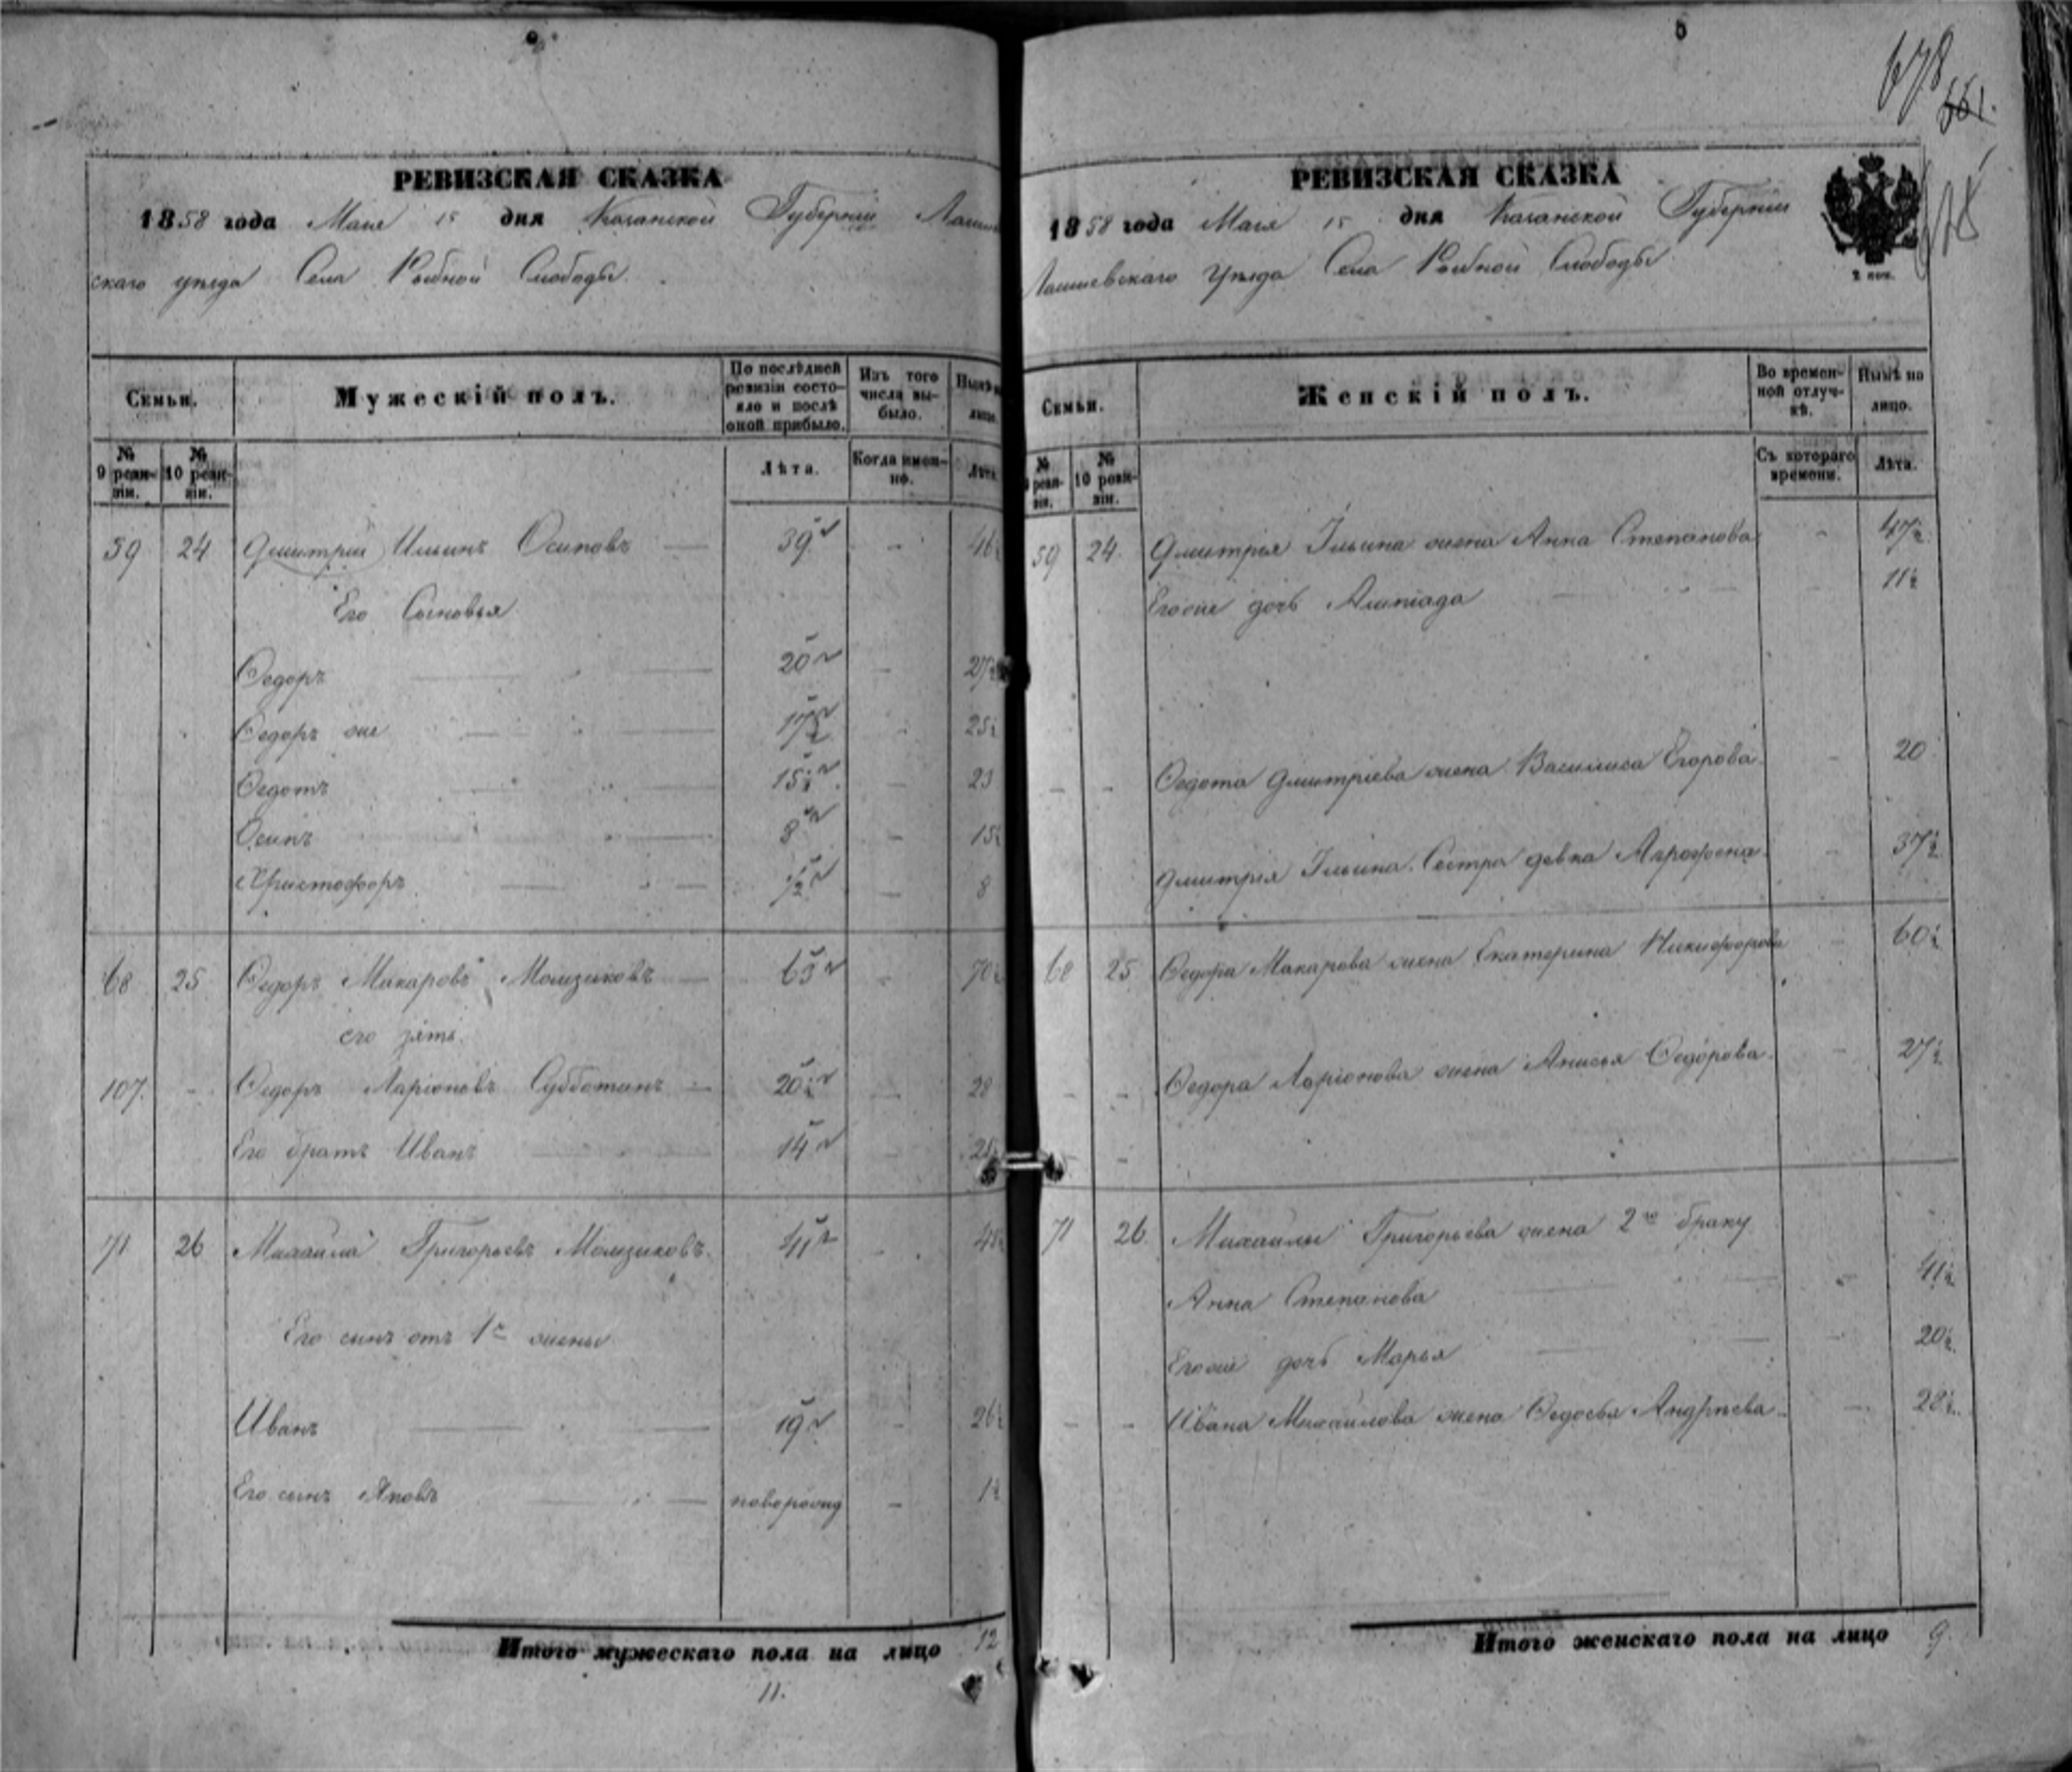 678
551.
РЕВИЗСКАЯ СКАЗКА
1858 года Мая 15 дня Казанской Губерніи Лаишев
скаго уѣзда Села Рыбной Слободы.
Семьи.
Мужескій полъ.
По послѣдней ревизіи состояло и послѣ оной прибыло.
Изъ того числа выбыло.
Нынѣ на лицо.
№ 9 ревизіи.
№ 10 ревизіи.
Лѣта.
Когда именно.
Лѣта.
59 24 Дмитрий Ильинъ Осиповъ — 39 - 46½
Его Сыновья
Ѳедоръ — 20 - 27½
Ѳедоръ же — 17½ - 25½
Ѳедотъ — 15½ - 23
Осипъ — 8 - 15½
Христофоръ — ½ - 8
68 25 Ѳедоръ Макаровъ Момзиковъ — 63 - 70½
его зять.
107. - Ѳедоръ Ларіоновъ Субботинъ — 20½ - 28
Его братъ Иванъ — 14 - 21½
71 26 Михайла Григорьевъ Момзиковъ. 41 - 48½
Его сынъ отъ 1й жены
Иванъ — 19 - 26½
Его сынъ Яковъ — новорожд - 1½
Итого мужескаго пола на лицо 12
11.
РЕВИЗСКАЯ СКАЗКА
1858 года Мая 15 дня Казанской Губерніи
Лаишевскаго Уѣзда Села Рыбной Слободы
2 коп.
Семьи.
Женскій полъ.
Во временной отлучкѣ.
Нынѣ на лицо.
№ 9 ревизіи.
№ 10 ревизіи.
Съ котораго времени.
Лѣта.
59 24. Дмитрія Ильина жена Анна Степанова - 47½
Егоже дочь Алипіада — 11½
- - Ѳедота Дмитріева жена Василиса Егорова - 20
Дмитрія Ильина Сестра девка Аграфена - 37½
68 25 Ѳедора Макарова жена Екатерина Никифорова - 60½
- - Ѳедора Ларіонова жена Анисья Ѳедорова - 27½
71 26. Михаилы Григорьева жена 2го браку
Анна Степанова — 41½
Егоже дочь Марья — 20½
- - Ивана Михайлова жена Ѳедосья Андрѣева - 28½
Итого женскаго пола на лицо 9.